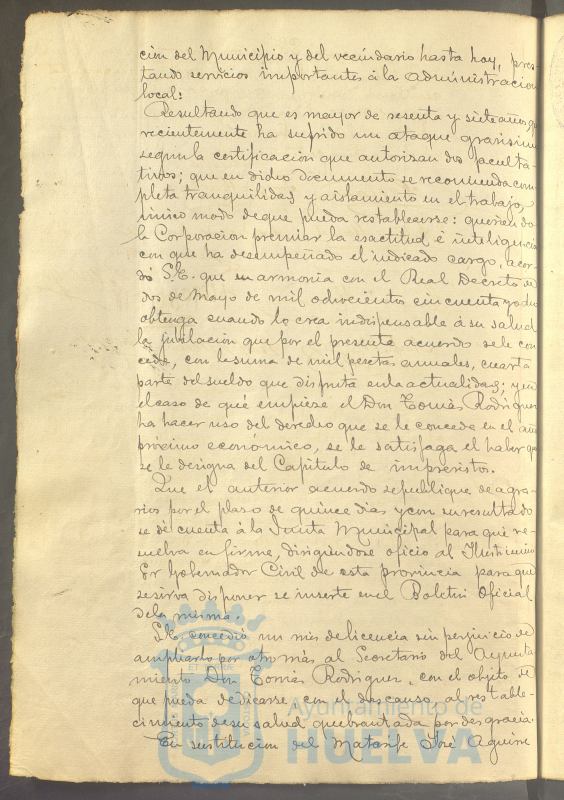 cion del Municipio y del vecindario hasta hoy, pres-
tando servicios importantes á la administracion
local:
Resultando que es mayor de sesenta y siete años, q
recientemente ha sufrido un ataque gravisimo
segun la certificacion que autorizan dos faculta-
tivos; que en dicho documento se recomienda com-
pleta tranquilidad y aislamiento en el trabajo,
único modo de que pueda restablecerse: queriendo
la Corporacion premiar la esactitud é inteligencia
con que ha desempeñado el indicado cargo, acor-
dó S.E. que en armonia con el Real Decreto de
dos de Mayo de mil ochocientos cincuenta y ocho
obtenga cuando lo crea indispensable á su salud
la jubilacion que por el presente acuerdo se le con
cede, con la suma de mil pesetas anuales, cuarta
parte del sueldo que disfruta en la actualidad; y en
el caso de que empiese el Don Tomás Rodriguez
ha hacer uso del derecho que se le concede en el año
próximo económico, se le satisfaga el haber que
se le designa del Capitulo de imprevistos.
Que el anterior acuerdo se publique de agra-
vios por el plaso de quince dias y con su resultado
se dé cuenta á la Junta Municipal para que re-
suelva en firme, dirigiendose oficio al Ilustrisimo
Sor Gobernador Civil de esta provincia para que
se sirva disponer se inserte en el Boletin Oficial
de la misma.
S.E. concedió un mes de licencia sin perjuicio de
ampliarlo por otro más al Secretario del Ayunta
miento Don Tomás Rodriguez, con el objeto de
que pueda dedicarse, con el descanso, al restable-
cimiento de su salud quebrantada por desgracia.
En sustitucion del Matarife José Aguirre
Ayuntamiento de
HUELVA